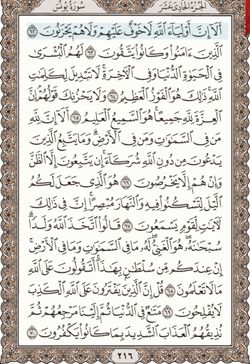 سُورَةُ يُونُسَ الجُزْءُ الحَادِي عَشَرَ
أَلَآ إِنَّ أَوْلِيَآءَ ٱللَّهِ لَا خَوْفٌ عَلَيْهِمْ وَلَا هُمْ يَحْزَنُونَ ٦٢
ٱلَّذِينَ ءَامَنُوا۟ وَكَانُوا۟ يَتَّقُونَ ٦٣ لَهُمُ ٱلْبُشْرَىٰ
فِى ٱلْحَيَوٰةِ ٱلدُّنْيَا وَفِى ٱلْءَاخِرَةِ لَا تَبْدِيلَ لِكَلِمَٰتِ
ٱللَّهِ ذَٰلِكَ هُوَ ٱلْفَوْزُ ٱلْعَظِيمُ ٦٤ وَلَا يَحْزُنكَ قَوْلُهُمْ إِنَّ
ٱلْعِزَّةَ لِلَّهِ جَمِيعًا هُوَ ٱلسَّمِيعُ ٱلْعَلِيمُ ٦٥ أَلَآ إِنَّ لِلَّهِ
مَن فِى ٱلسَّمَٰوَٰتِ وَمَن فِى ٱلْأَرْضِ وَمَا يَتَّبِعُ ٱلَّذِينَ
يَدْعُونَ مِن دُونِ ٱللَّهِ شُرَكَآءَ إِن يَتَّبِعُونَ إِلَّا ٱلظَّنَّ
وَإِنْ هُمْ إِلَّا يَخْرُصُونَ ٦٦ هُوَ ٱلَّذِى جَعَلَ لَكُمُ
ٱلَّيْلَ لِتَسْكُنُوا۟ فِيهِ وَٱلنَّهَارَ مُبْصِرًا إِنَّ فِى ذَٰلِكَ
لَءَايَٰتٍ لِّقَوْمٍ يَسْمَعُونَ ٦٧ قَالُوا۟ ٱتَّخَذَ ٱللَّهُ وَلَدًا
سُبْحَٰنَهُۥ هُوَ ٱلْغَنِىُّ لَهُۥ مَا فِى ٱلسَّمَٰوَٰتِ وَمَا فِى ٱلْأَرْضِ
إِنْ عِندَكُم مِّن سُلْطَٰنٍۭ بِهَٰذَآ أَتَقُولُونَ عَلَى ٱللَّهِ
مَا لَا تَعْلَمُونَ ٦٨ قُلْ إِنَّ ٱلَّذِينَ يَفْتَرُونَ عَلَى ٱللَّهِ ٱلْكَذِبَ
لَا يُفْلِحُونَ ٦٩ مَتَٰعٌ فِى ٱلدُّنْيَا ثُمَّ إِلَيْنَا مَرْجِعُهُمْ ثُمَّ
نُذِيقُهُمُ ٱلْعَذَابَ ٱلشَّدِيدَ بِمَا كَانُوا۟ يَكْفُرُونَ ٧٠
٢١٦